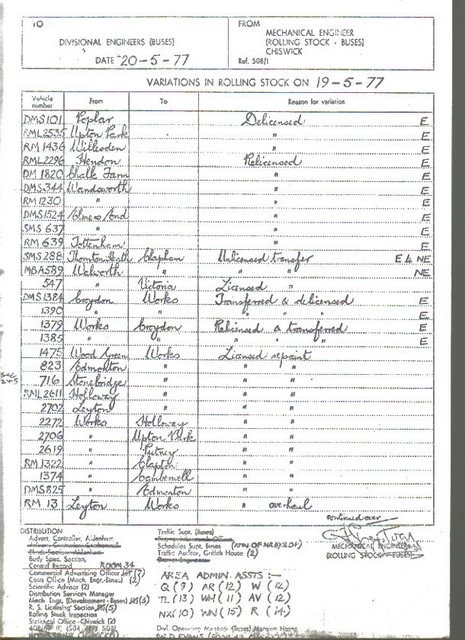 TO
FROM
DIVISIONAL ENGINEERS (BUSES)
MECHANICAL ENGINEER
(ROLLING STOCK - BUSES)
CHISWICK
DATE 20-5-77
Ref. 508/1
VARIATIONS IN ROLLING STOCK ON 19-5-77
Vehicle number From To Reason for variation
DMS 101 Poplar Delicensed E
RML 2535 Upton Park " E
RM 1436 Willesden " E
RML 2296 Hendon Relicensed E
DM 1820 Chalk Farm " E
DMS 344 Wandsworth " E
RM 1230 " " E
DMS 1524 Elmers End " E
SMS 637 " " E
RM 639 Tottenham " E
SMS 288 Thornton Heath Clapham Unlicensed transfer E & NE
MBA 589 Walworth " " " NE
547 " Victoria Licensed "
DMS 1384 Croydon Works Transferred & delicensed E
1390 " " " " " E
1379 Works Croydon Relicensed & transferred E
1385 " " " " " E
1475 Wood Green Works Licensed repaint
823 Edmonton " " "
716 Stonebridge " " "
RML 2611 Holloway " " "
2707 Leyton " " "
2272 Works Holloway " "
2706 " Upton Park " "
2619 " Putney " "
RM 1322 " Clapton " "
1374 " Camberwell " "
DMS 825 " Edmonton " "
RM 13 Leyton Works " overhaul
continued over
MECHANICAL ENGINEER
ROLLING STOCK
DISTRIBUTION
Advert. Controller,
Body Spec. Section,
Central Record ROOM 34
Commercial Advertising Officer
Costs Office (Mech. Engr.-Buses) (2)
Scientific Advisor (2)
Distribution Services Manager
Mech. Engr. (Development - Buses)
R. S. Licensing Section,
Rolling Stock Inspection
Statistical Office - Chiswick
Traffic Supt. (Buses)
Schedules Supt.
Traffic Auditor, Griffith House (2)
AREA ADMIN. ASSTS :-
Q (9) AR (12) W (12)
TL (13) WH (11) AV (12)
NX (10) WN (15) R (14)